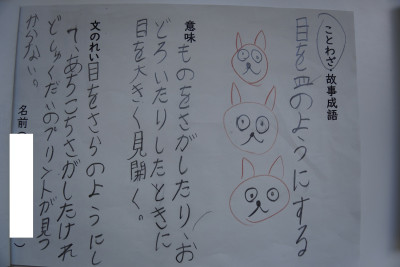 ことわざ 故事成語
目を皿のようにする
意味
ものをさがしたり、お
どろいたりしたときに
目を大きく見開く。
文のれい
目をさらのようにし
て、あちこちさがしたけれ
どしゅくだいのプリントが見つ
からない。
名前( )